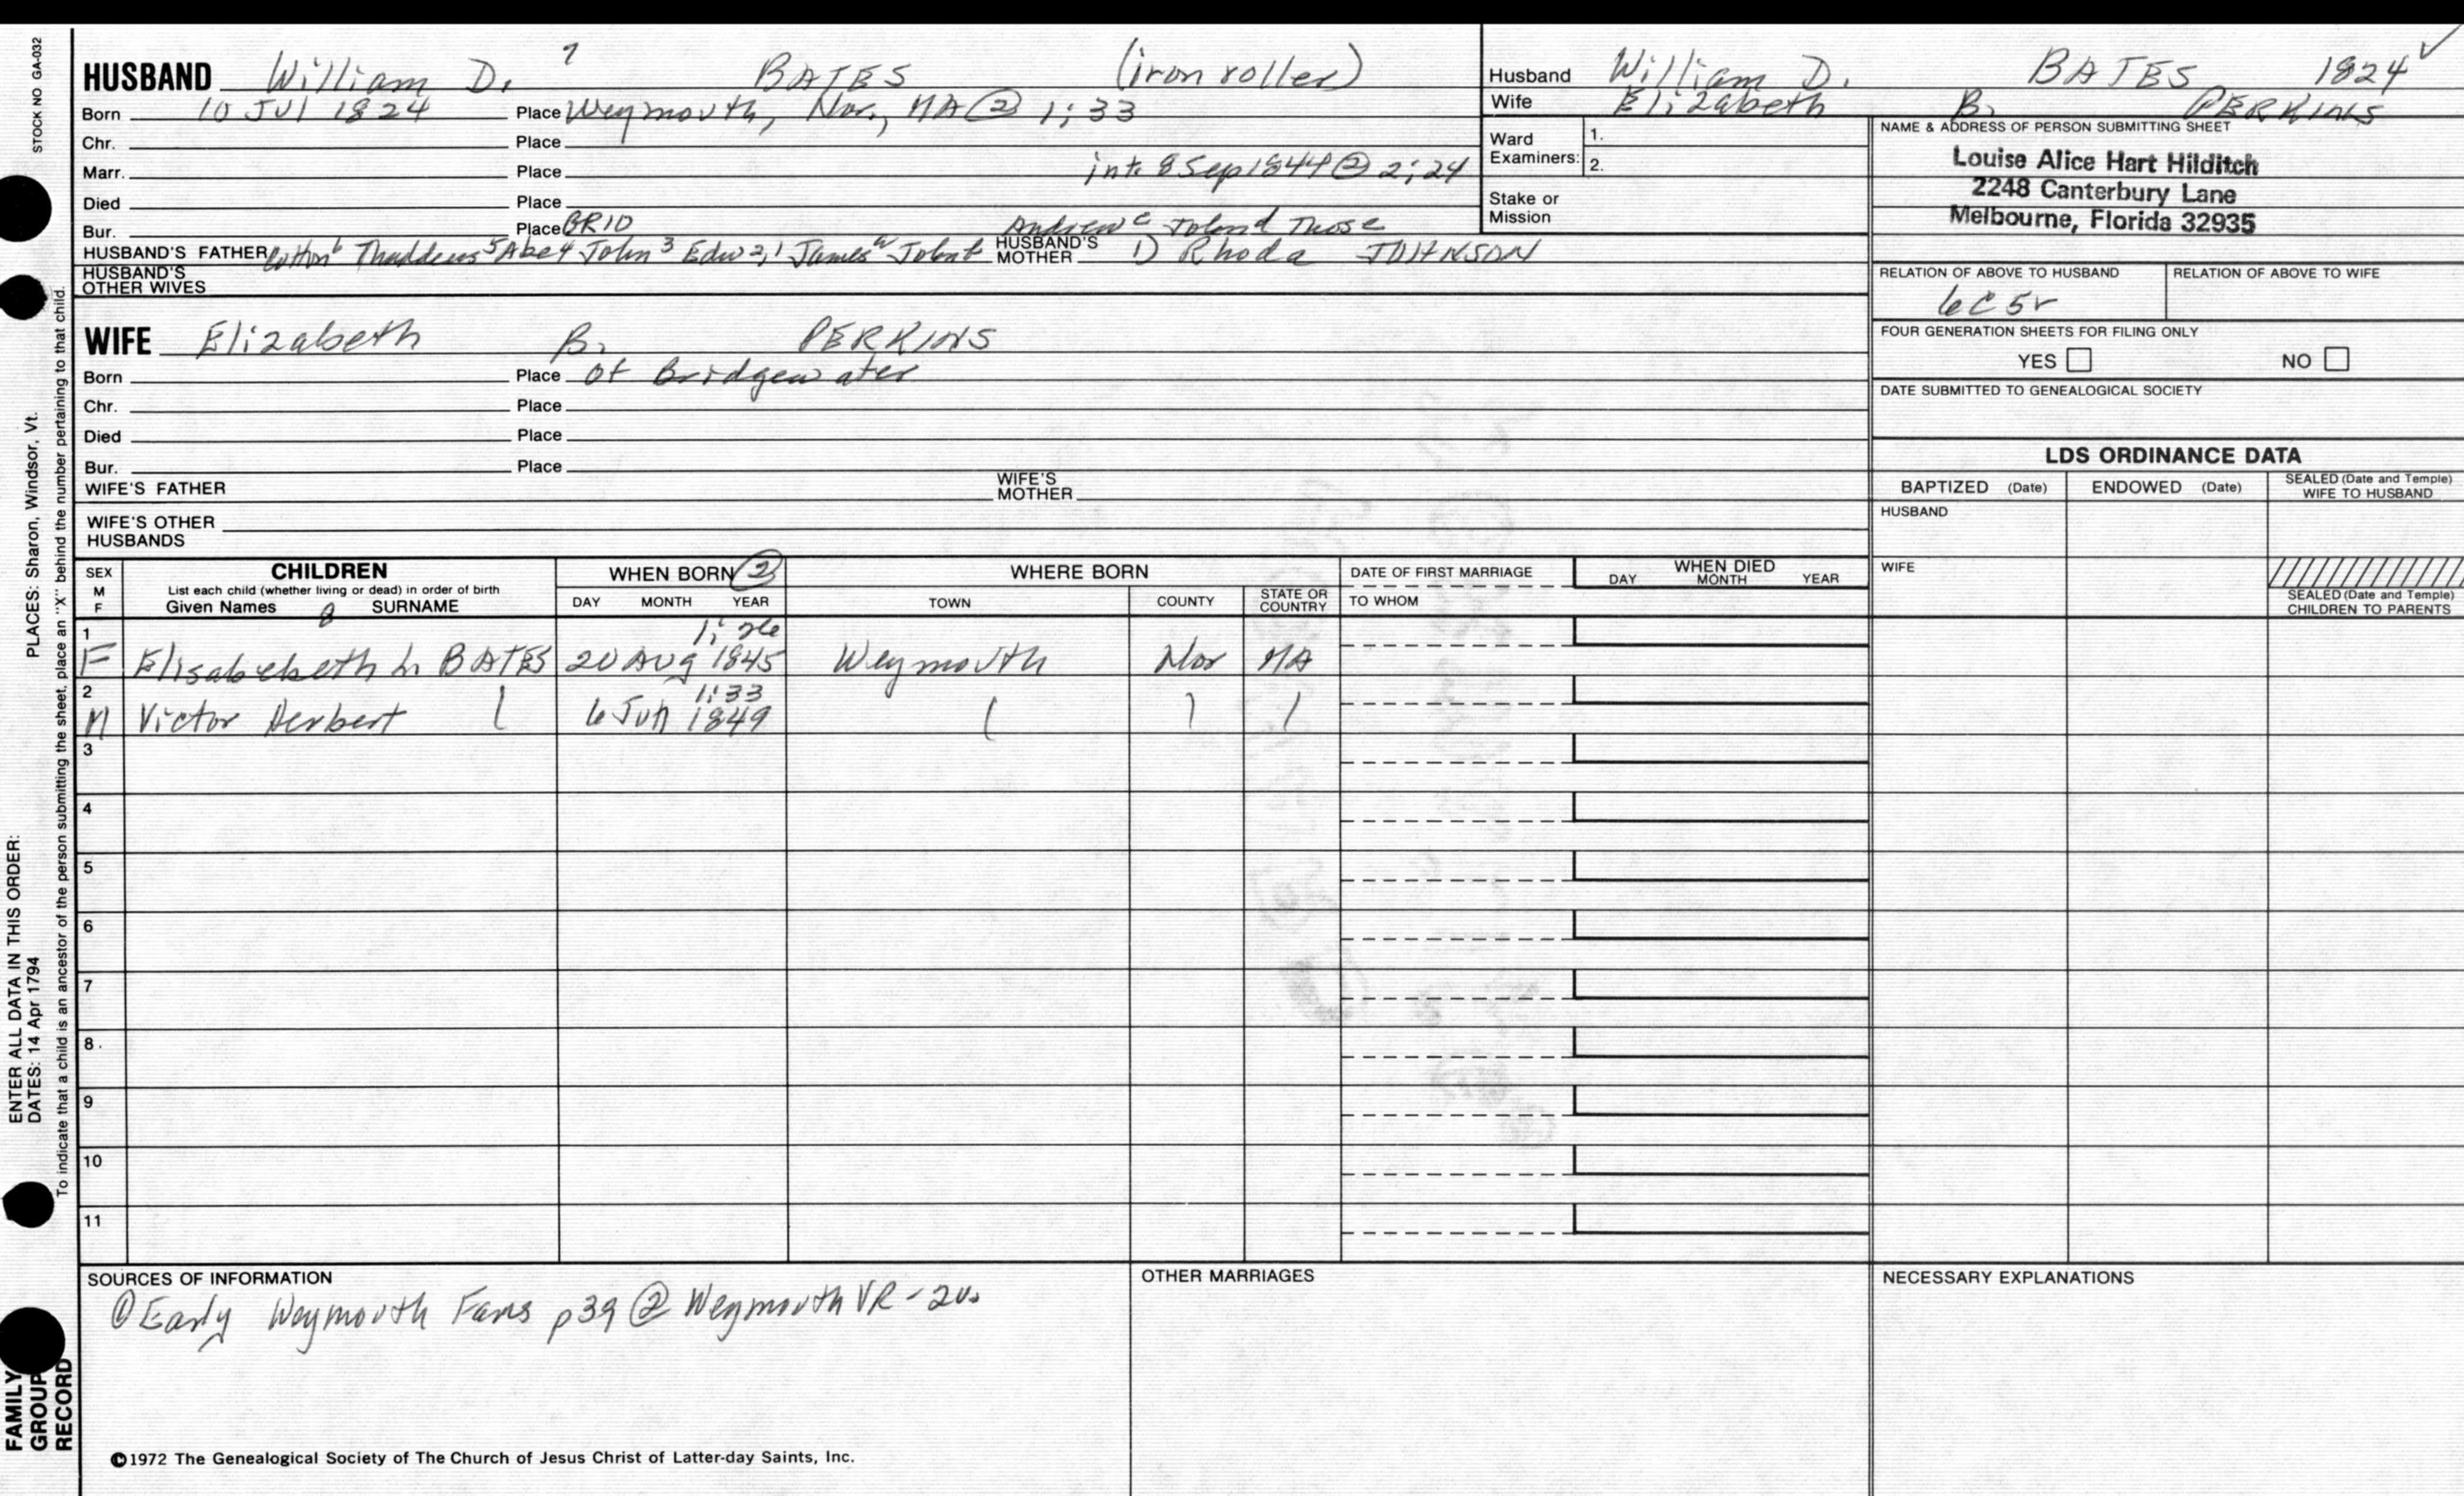 STOCK NO GA-032
HUSBAND William D. 7 BATES (iron roller)
Born 10 Jul 1824 Place Weymouth, Nor., MA @ 1:33
Chr. Place
Marr. Place int. 8 Sep 1844 @ 2:24
Died Place
Bur. Place BR10 Andrew c
HUSBAND'S FATHER Cotton 6 Thaddeus 5 Abe 4 John 3 Edw 2,1 James HUSBAND'S MOTHER 1) Rhoda JOHNSON
HUSBAND'S OTHER WIVES
Husband William D. BATES 1824 ✓
Wife Elizabeth B. PERKINS
Ward Examiners: 1.
2.
Stake or Mission
NAME & ADDRESS OF PERSON SUBMITTING SHEET
Louise Alice Hart Hilditch
2248 Canterbury Lane
Melbourne, Florida 32935
RELATION OF ABOVE TO HUSBAND RELATION OF ABOVE TO WIFE
6C5r
FOUR GENERATION SHEETS FOR FILING ONLY
YES NO
DATE SUBMITTED TO GENEALOGICAL SOCIETY
WIFE Elizabeth B. PERKINS
Born Place Of Bridgewater
Chr. Place
Died Place
Bur. Place
WIFE'S FATHER WIFE'S MOTHER
WIFE'S OTHER HUSBANDS
LDS ORDINANCE DATA
BAPTIZED (Date) ENDOWED (Date) SEALED (Date and Temple) WIFE TO HUSBAND
HUSBAND
WIFE
SEALED (Date and Temple) CHILDREN TO PARENTS
SEX M F
CHILDREN
List each child (whether living or dead) in order of birth
Given Names 8 SURNAME
WHEN BORN ②
DAY MONTH YEAR
WHERE BORN
TOWN COUNTY STATE OR COUNTRY
DATE OF FIRST MARRIAGE
TO WHOM
WHEN DIED
DAY MONTH YEAR
1 1:26
F Elisabebeth L. BATES 20 Aug 1845 Weymouth Nor MA
2 1:33
M Victor Herbert ( 6 Jun 1849 ( ) /
3
4
5
6
7
8
9
10
11
SOURCES OF INFORMATION
① Early Weymouth Fams p39 ② Weymouth VR - 2v.
OTHER MARRIAGES
NECESSARY EXPLANATIONS
©1972 The Genealogical Society of The Church of Jesus Christ of Latter-day Saints, Inc.
ENTER ALL DATA IN THIS ORDER:
DATES: 14 Apr 1794 PLACES: Sharon, Windsor, Vt.
To indicate that a child is an ancestor of the person submitting the sheet, place an "X" behind the number pertaining to that child.
FAMILY
GROUP
RECORD